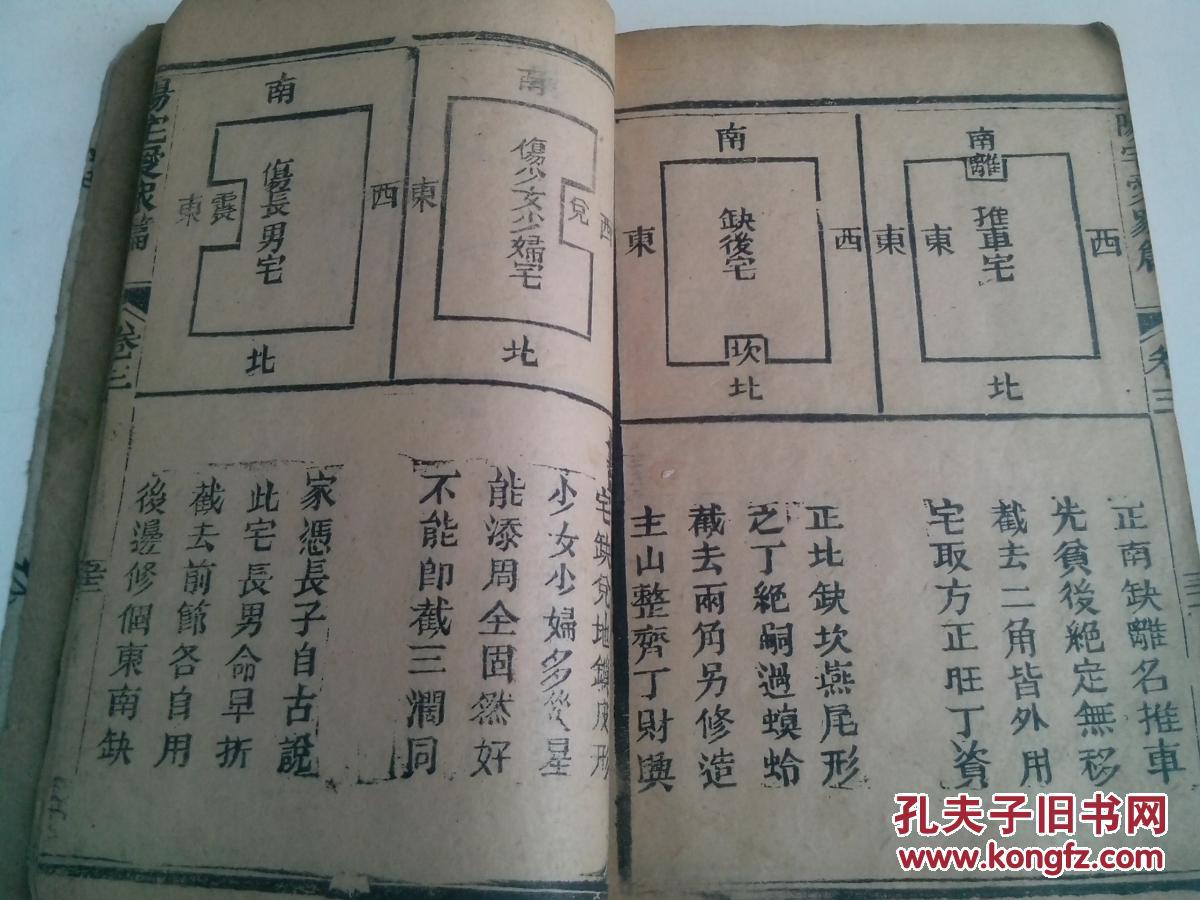 南
離
推車宅
東
西
北
正南缺離名推車
先貧後絕定無移
截去二角皆外用
宅取方正旺丁資
南
缺後宅
東
西
坎
北
正北缺坎燕尾形
乏丁絕嗣過螟蛉
截去兩角另修造
主山整齊丁財興
卷三
南
傷少女少婦宅
兌
西
東
北
宅缺兌地
形
少女少婦多災星
能添周全固然好
不能即截三濶同
南
傷長男宅
東
西
北
家憑長子自古說
此宅長男命早折
截去前節各自用
後邊修個東南缺
陽宅愛衆篇
卷三
孔夫子旧书网
www.kongfz.com